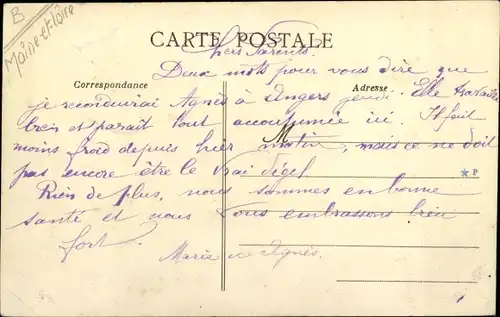 B
Maine-et-Loire
CARTE POSTALE
Chers Parents.
Correspondance
Adresse
Deux mots pour vous dire que
je reconduirai Agnès à Angers jeudi. Elle travaille
bien et parait tout accoutumée ici. Il fait
M
moins froid depuis hier matin, mais ce ne doit
pas encore être le vrai dégel
P
Rien de plus, nous sommes en bonne
santé et nous vous embrassons bien
fort.
Marie et Agnès.